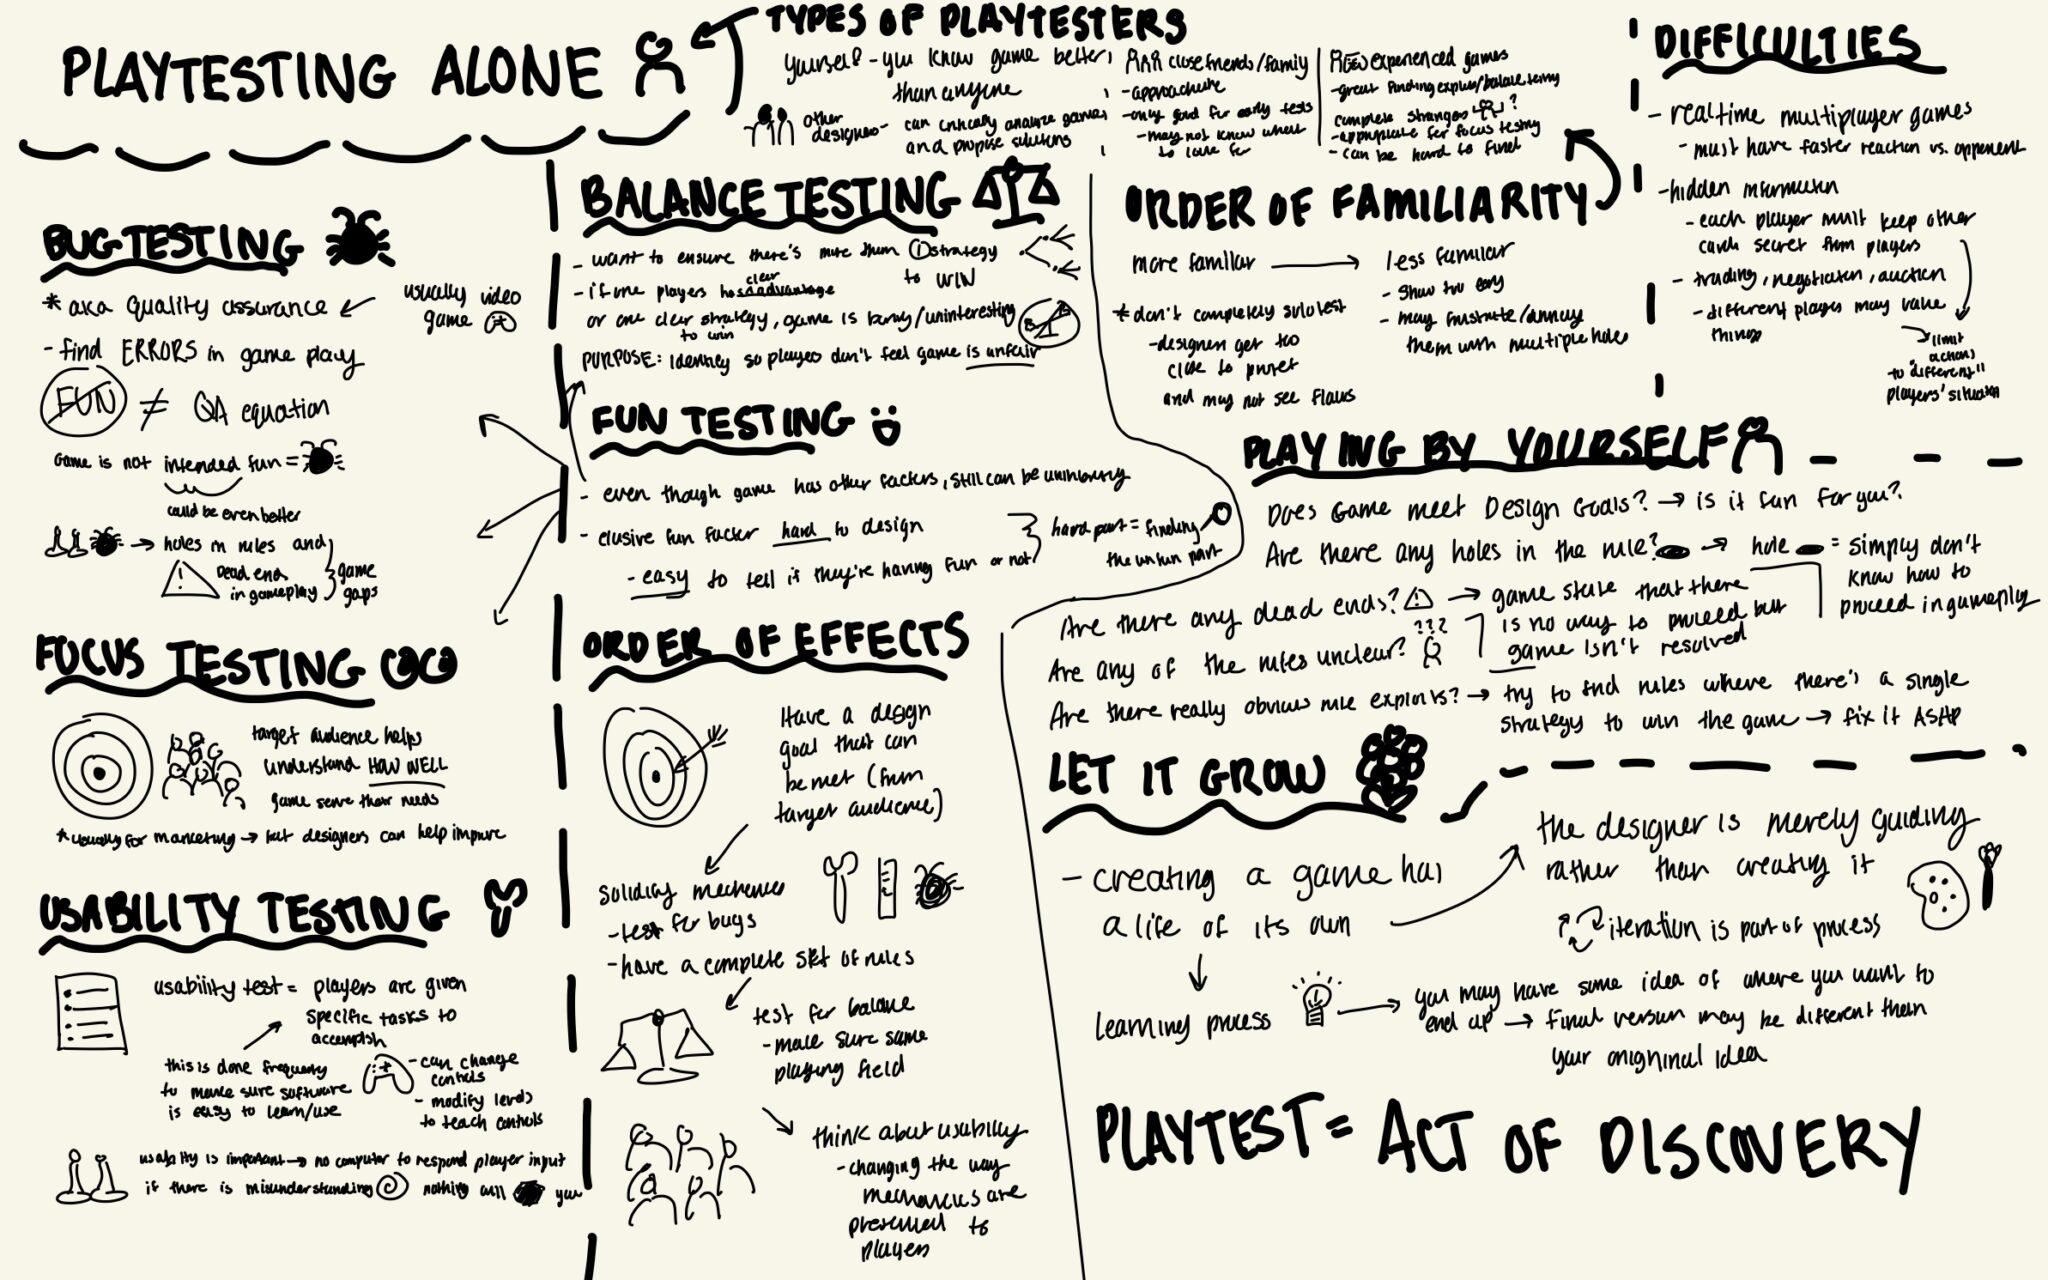 PLAYTESTING ALONE
TYPES OF PLAYTESTERS
yourself - you know game better
than anyone
other
designers - can critically analyze games
and propose solutions
close friends/family
- approachable
- only good for early tests
- may not know what
to look for
experienced games
- great finding exploits/balance testing
complete strangers ?
- appropriate for focus testing
- can be hard to find
DIFFICULTIES
- realtime multiplayer games
- must have faster reaction vs. opponent
- hidden information
- each player must keep other
cards secret from players
- trading, negotiation, auction
- different players may value
things
limit
actions
to "different"
players' situation
BUG TESTING
* aka quality assurance
usually video
game
- find ERRORS in game play
FUN ≠ QA equation
Game is not intended fun =
could be even better
→ holes in rules and
Dead end
in gameplay
game
gaps
FOCUS TESTING
target audience helps
understand HOW WELL
game serve their needs
* usually for marketing → but designers can help improve
USABILITY TESTING
usability test = players are given
specific tasks to
accomplish
this is done frequently
to make sure software
is easy to learn/use
- can change
controls
- modify levels
to teach controls
usability is important → no computer to respond player input
if there is misunderstanding nothing will you
BALANCE TESTING
- want to ensure there's more than 1 strategy
to WIN
- if one players has clear advantage
or one clear strategy, game is boring/uninteresting
to win
PURPOSE: Identify so players don't feel game is unfair
FUN TESTING
- even though game has other factors, still can be uninteresting
- elusive fun factor hard to design
- easy to tell if they're having fun or not
hard part = finding
the unfun part
ORDER OF EFFECTS
Have a design
goal that can
be met (from
target audience)
solidify mechanics
- test for bugs
- have a complete set of rules
test for balance
- make sure same
playing field
think about usability
- changing the way
mechanics are
presented to
players
ORDER OF FAMILIARITY
more familar → less familiar
- show too early
- may frustrate/annoy
them with multiple holes
* don't completely solo test
- designers get too
close to project
and may not see flaws
PLAYING BY YOURSELF
Does Game meet Design Goals? → is it fun for you?
Are there any holes in the rule? → hole = simply don't
know how to
proceed in gameply
Are there any dead ends? → game state that there
is no way to proceed but
game isn't resolved
Are any of the rules unclear? ???
Are there really obvious rule exploits? → try to find rules where there's a single
strategy to win the game → fix it ASAP
LET IT GROW
- creating a game has
a life of its own
the designer is merely guiding
rather than creating it
iteration is part of process
learning process
you may have some idea of where you want to
end up → final version may be different than
your onighinal idea
PLAYTEST = ACT OF DISCOVERY